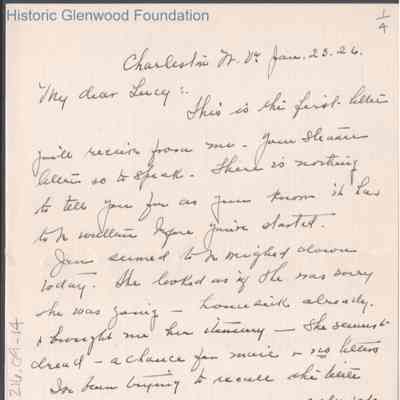 Historic Glenwood Foundation
1/4
Charleston W. Va. Jan. 23. 26.
My dear Lucy:.
This is the first letter
you'll receive from me - your Steamer
letter so to speak. There is nothing
to tell you for as you know it has
to be written before you've started.
Jean seemed to be weighed down
today. She looked as if she was sorry
she was going - homesick already.
& brought me her itinerary - She seems to
dread - a chance for more & no letters
I've been trying to recall the little
26.09-14